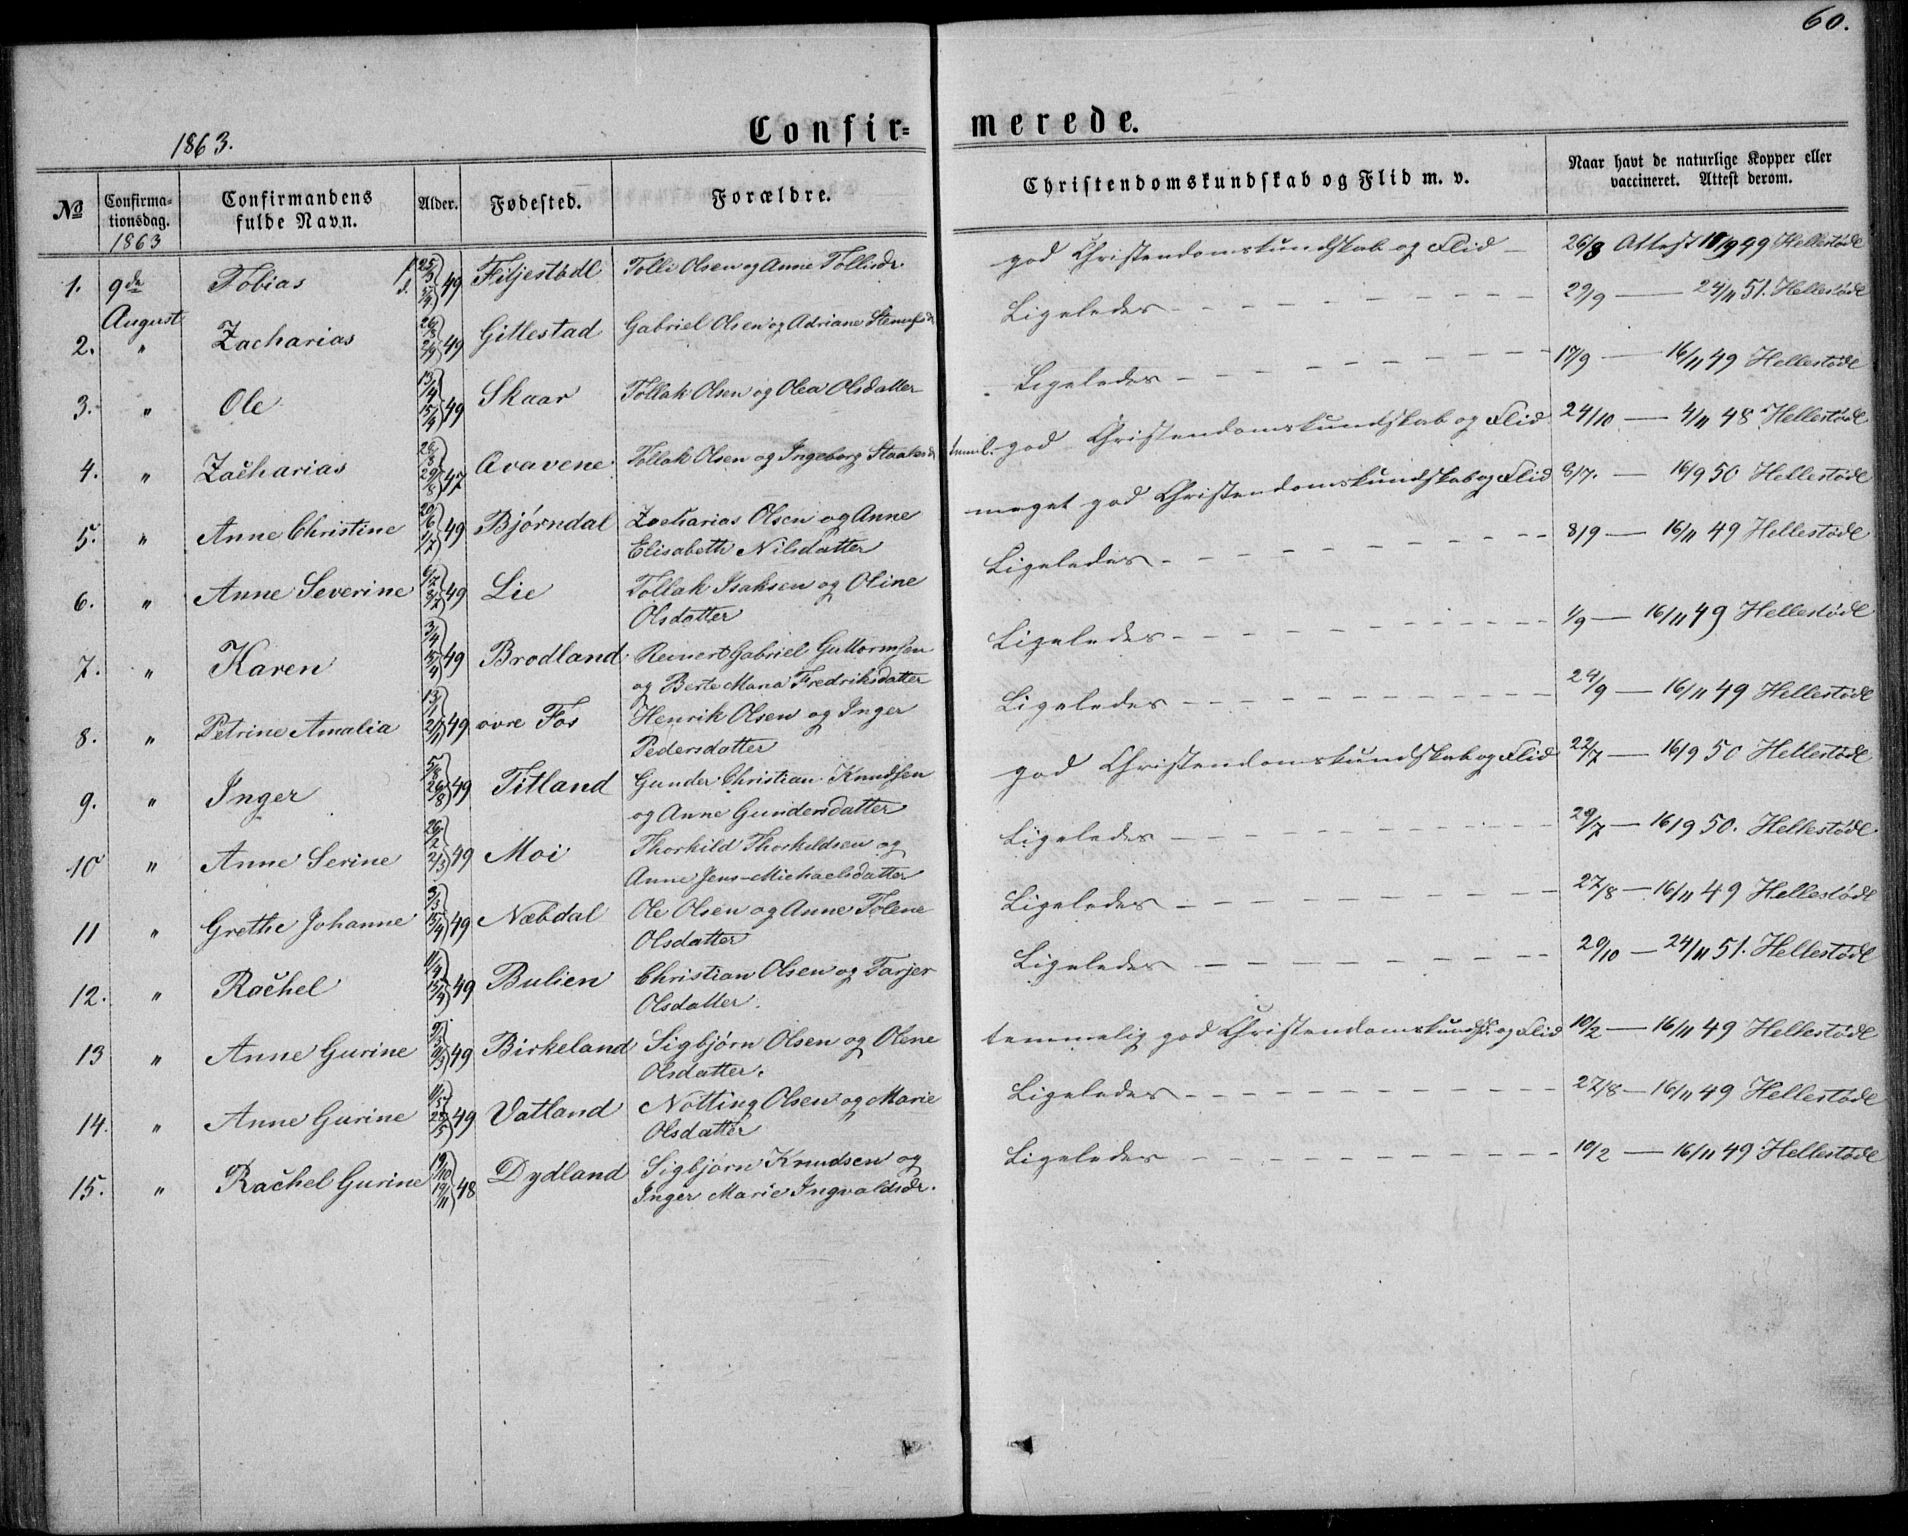 60.
1863.
Confir=merede.
№ Confirmationsdag. Confirmandens fulde Navn. Alder. Fødested. Forældre. Christendomskundskab og Flid m. v. Naar havt de naturlige Kopper eller vaccineret. Attest derom.
1863
1. 9de August Tobias 49 Filjestødl Tolli Olsen og Anne Tollisdr. god Christendomskundskab og Flid 26/8 Attest 49 Hellestødl
2. " Zacharias 26/8 2/9 49 Gillestad Gabriel Olsen og Adriane Ligeledes 29/9 — 24/11 51. Hellestødl
3. " Ole 13/4 15/4 49 Skaar Tollak Olsen og Olea Olsdatter Ligeledes 17/9 — 16/11 49 Hellestødl
4. " Zacharias 26/8 29/8 47 Aavavene Tollak Olsen og Ingeborg temml. god Christendomskundskab og Flid 24/10 — 4/11 48 Hellestødl
5. " Anne Christine 20/6 1/7 49 Bjørndal Zacharias Olsen og Anne
Elisabeth Nilsdatter meget god Christendomskundskab og Flid 8/7. — 16/9 50 Hellestødl
6. " Anne Severine 49 Lie Tollak Isaksen og Oline
Olsdatter Ligeledes 8/9 — 16/11 49 Hellestødl
7. " Karen 3/4 15/4 49 Brodland Reinert Gabriel Guttormsen
og Berte Maria Fredriksdatter Ligeledes 1/9 — 16/11 49 Hellestødl
8. " Petrine Amalia 13/1 21/1 49 øvre Fos Henrik Olsen og Inger
Pedersdatter Ligeledes 24/9 — 16/11 49 Hellestødl
9. " Inger 5/8 26/8 49 Titland Gunder Christian Knudsen
og Anne Gundersdatter god Christendomskundskab og Flid 22/7 — 16/9 50 Hellestødl
10 " Anne Serine 26/2 2/3 49 Moi Thorkild Thorkildsen og
Anne Jens-Michaelsdatter Ligeledes 29/7 — 16/9 50. Hellestødl
11 " Grethe Johanne 15/4 49 Næbdal Ole Olsen og Anne Tolene
Olsdatter Ligeledes 27/8 — 16/11 49 Hellestødl
12. " Rachel 11/4 15/4 49 Bulien Christian Olsen og Tarjer
Olsdatter. Ligeledes 29/10 — 24/11 51. Hellestødl
13 " Anne Gurine 11/3 49 Birkeland Sigbjørn Olsen og Olene
Olsdatter. temmelig god Christendomskundsk. og Flid 10/2 — 16/11 49 Hellestødl
14. " Anne Gurine 11/5 27/5 49 Vatland Notting Olsen og Marie
Olsdatter Ligeledes 27/8 — 16/11 49 Hellestødl
15. " Rachel Gurine 19/10 19/11 48 Dydland Sigbjørn Knudsen og
Inger Marie Ingvaldsdr. Ligeledes 10/2 — 16/11 49 Hellestødl